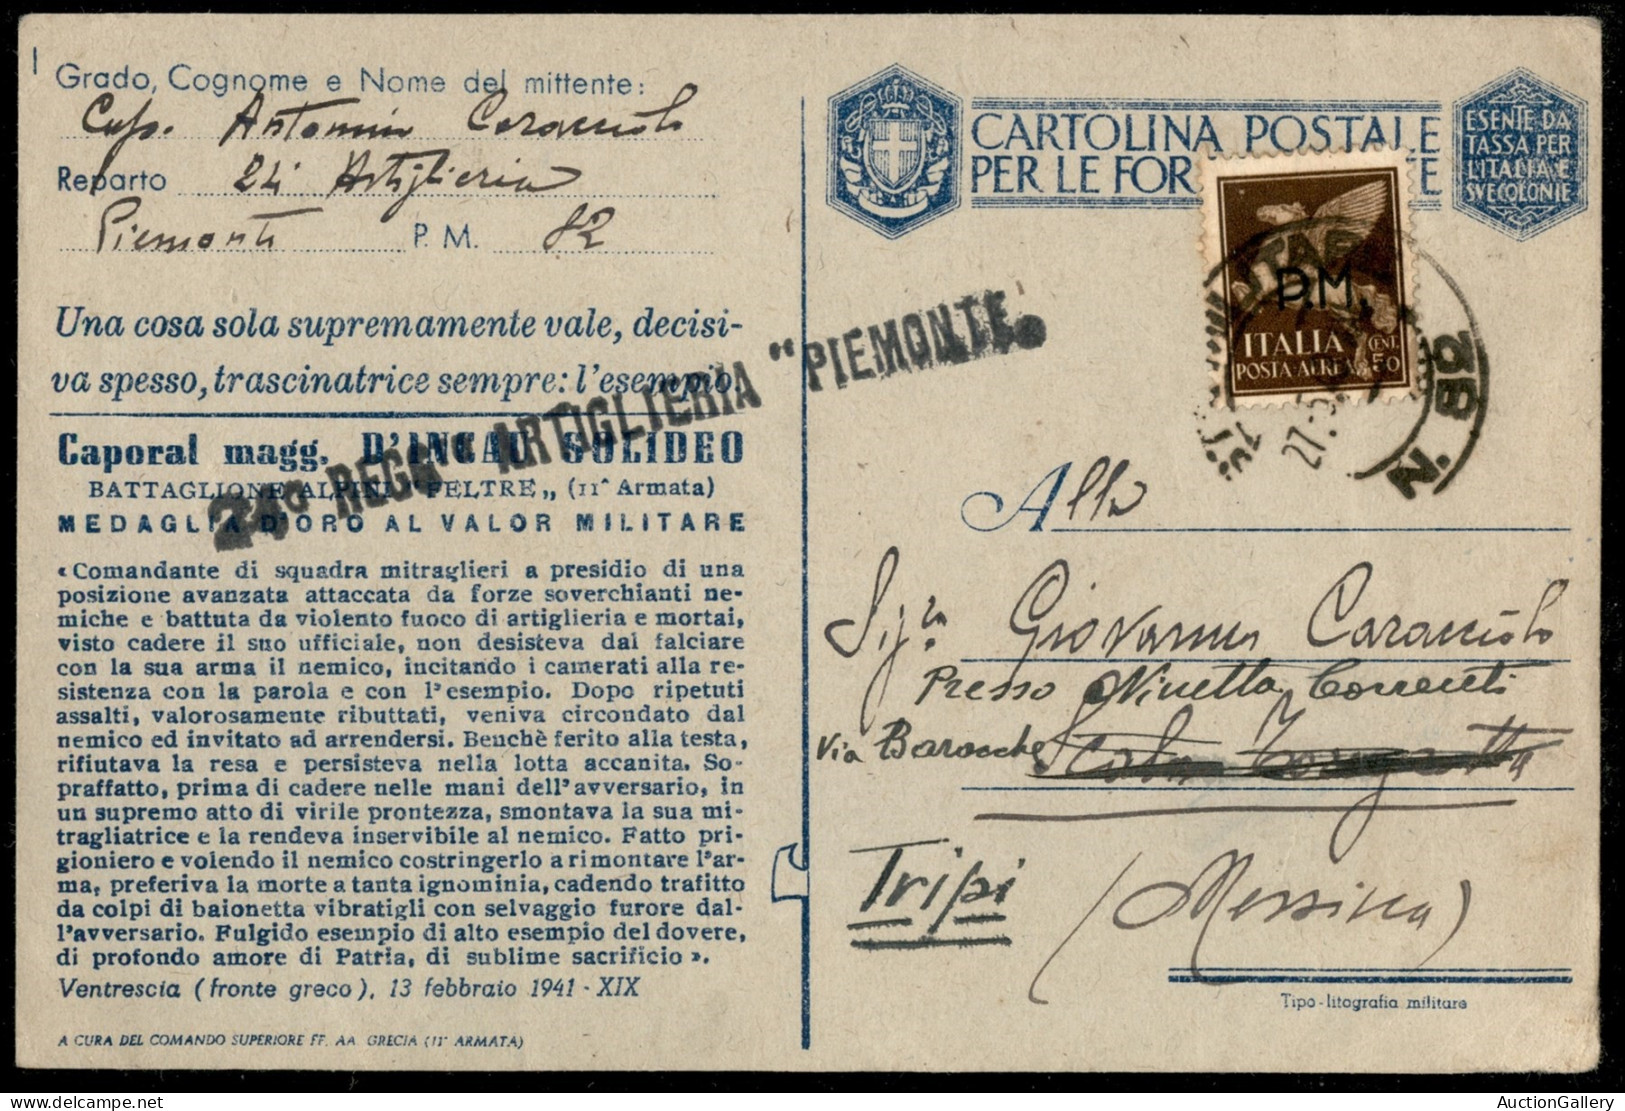 Grado, Cognome e Nome del mittente:
Cap. Antonino Caracciolo
Reparto 24° Artiglieria
Piemonte P. M. 82
Una cosa sola supremamente vale, decisi-
va spesso, trascinatrice sempre: l'esempio.
24° REGG° ARTIGLIERIA "PIEMONTE"
Caporal magg. D'INCAU SOLIDEO
BATTAGLIONE ALPINI "FELTRE„ (11ᵃ Armata)
MEDAGLIA D'ORO AL VALOR MILITARE
«Comandante di squadra mitraglieri a presidio di una
posizione avanzata attaccata da forze soverchianti ne-
miche e battuta da violento fuoco di artiglieria e mortai,
visto cadere il suo ufficiale, non desisteva dal falciare
con la sua arma il nemico, incitando i camerati alla re-
sistenza con la parola e con l'esempio. Dopo ripetuti
assalti, valorosamente ributtati, veniva circondato dal
nemico ed invitato ad arrendersi. Benchè ferito alla testa,
rifiutava la resa e persisteva nella lotta accanita. So-
praffatto, prima di cadere nelle mani dell'avversario, in
un supremo atto di virile prontezza, smontava la sua mi-
tragliatrice e la rendeva inservibile al nemico. Fatto pri-
gioniero e volendo il nemico costringerlo a rimontare l'ar-
ma, preferiva la morte a tanta ignominia, cadendo trafitto
da colpi di baionetta vibratigli con selvaggio furore dal-
l'avversario. Fulgido esempio di alto esempio del dovere,
di profondo amore di Patria, di sublime sacrificio ».
Ventrescia (fronte greco), 13 febbraio 1941 - XIX
A CURA DEL COMANDO SUPERIORE FF. AA. GRECIA (11ᵃ ARMATA)
CARTOLINA POSTALE
PER LE FOR TE
ESENTE DA
TASSA PER
L'ITALIA E
SUE COLONIE
P.M.
ITALIA
POSTA-AEREA
CENT. 50
N. 82
Alla
Sig.ra Giovanna Caracciolo
Presso Ninetta Correnti
Via Barocche
Tripi (Messina)
Tipo-litografia militare
AuctionGallery